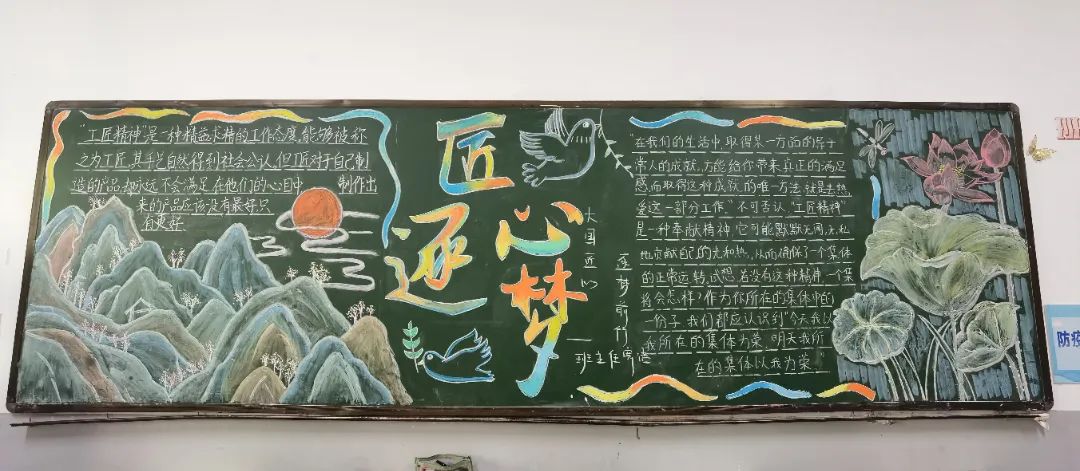 "工匠精神"是一种精益求精的工作态度,能够被称
之为工匠,其手艺自然得到社会公认,但匠对于自己制
造的产品却永远不会满足,在他们的心目中 制作出
来的产品应该没有最好只
有更好
匠心
逐梦
大国匠心
逐梦前行
——班主任寄语
"在我们的生活中,取得某一方面的异于
常人的成就,方能给你带来真正的满足
感,而取得这种成就的唯一方法,就是去热
爱这一部分工作。"不可否认,"工匠精神"
是一种奉献精神,它可能默默无闻,无私
地贡献自己的光和热,从而确保了一个集体
的正常运转,试想,若没有这种精神,一个集
将会怎样?作为你所在的集体中的
一份子,我们都应认识到"今天我以
我所在的集体为荣,明天我所
在的集体以我为荣"
防疫